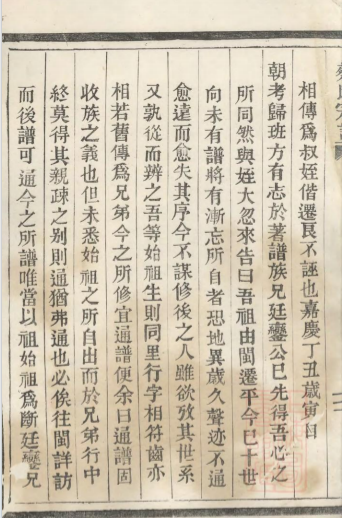 相傳爲叔姪偕遷艮不誣也嘉慶丁丑歲寅自
朝考歸班方有志於著譜族兄廷鑾公已先得吾心之
所同然與姪大忽來告曰吾祖由閩遷平今已十世
向未有譜將有漸忘所自者恐地異歲久聲迹不通
愈遠而愈失其序今不謀修後之人雖欲攷其世系
又孰從而辨之吾等始祖生則同里行字相符齒亦
相若舊傳爲兄弟今之所修宜通譜便余曰通譜固
收族之義也但未悉始祖之所自由而於兄弟行中
終莫得其親疎之别則通猶弗通也必俟往閩詳訪
而後譜可通今之所譜唯當以祖始祖爲斷廷鑾兄